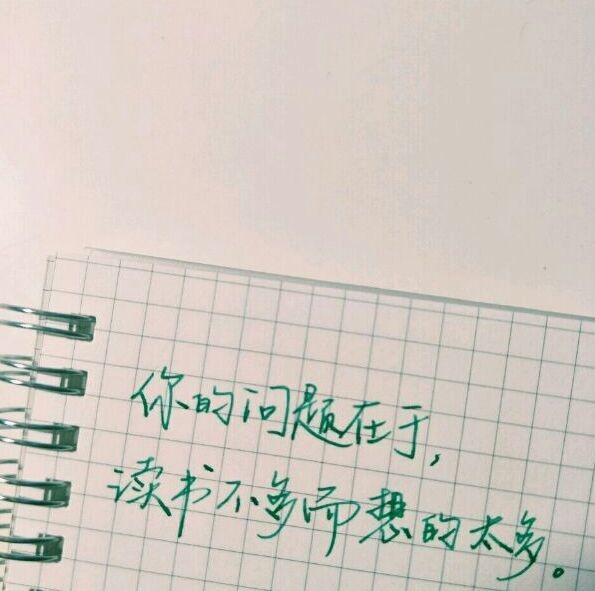 你的问题在于，
读书不多而想的太多。